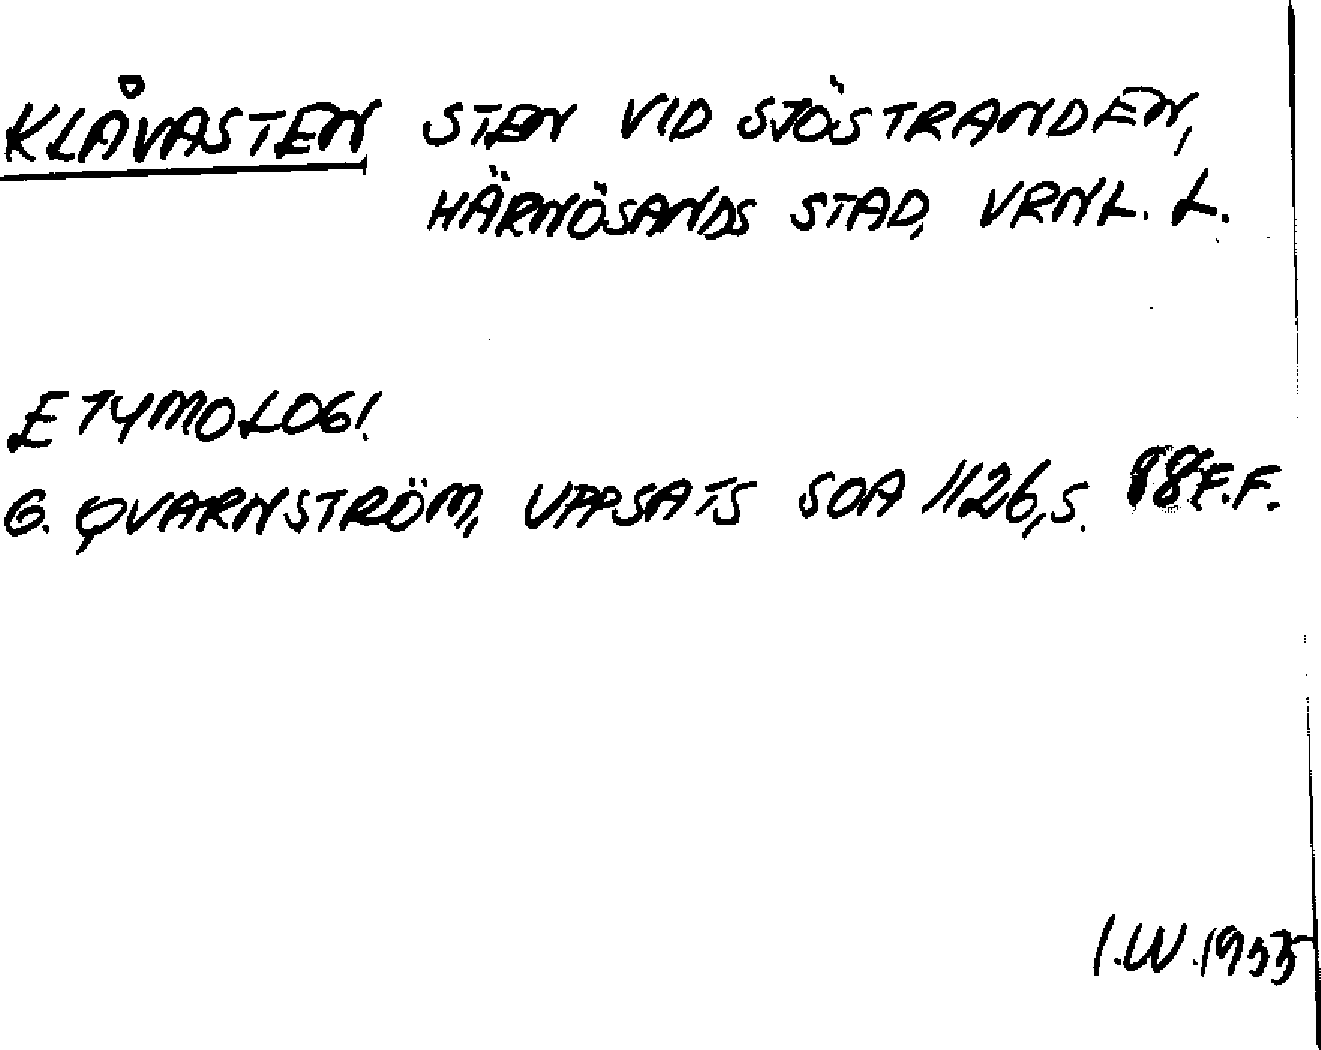 KLÅVASTEN STEN VID SJÖSTRANDEN,
HÄRNÖSANDS STAD, VRNL. L.
ETYMOLOGI.
G. QVARNSTRÖM, UPPSATS SOA 1126, S. 88 F.F.
I.W. 1955